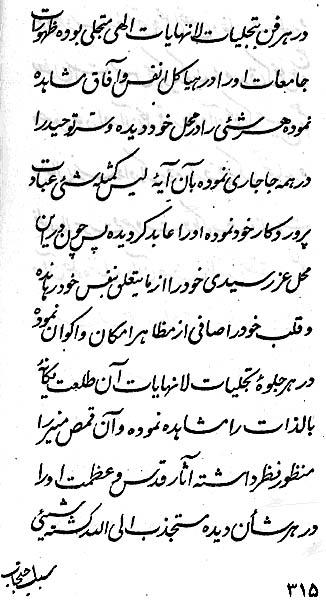 در هر فن بتجلیات لانهایات الهی متجلی بوده ظهورات
جامعات او را در هیاکل انفس و آفاق مشاهده
نموده هر شئی را در محل خود دیده و سرّ توحید را
در همه جا جاری نموده بآن آیهٔ لیس کمثله شئی عبادت
پروردگار خود نموده او را عابد گردیده پس چون در این
محل عز رسیدی خود را از ما یتعلق بنفس خود رهانده
و قلب خود را صافی از مظاهر امکان و اکوان نموده
در هر جلوهٔ بتجلیات لانهایات آن طلعت یگانهٔ
بالذات را مشاهده نموده و آن قمص منیر را
منظور نظر داشته آثار قدس و عظمت او را
در هر شأن دیده مستجذب الی الله گشته شئی
۳۱۵